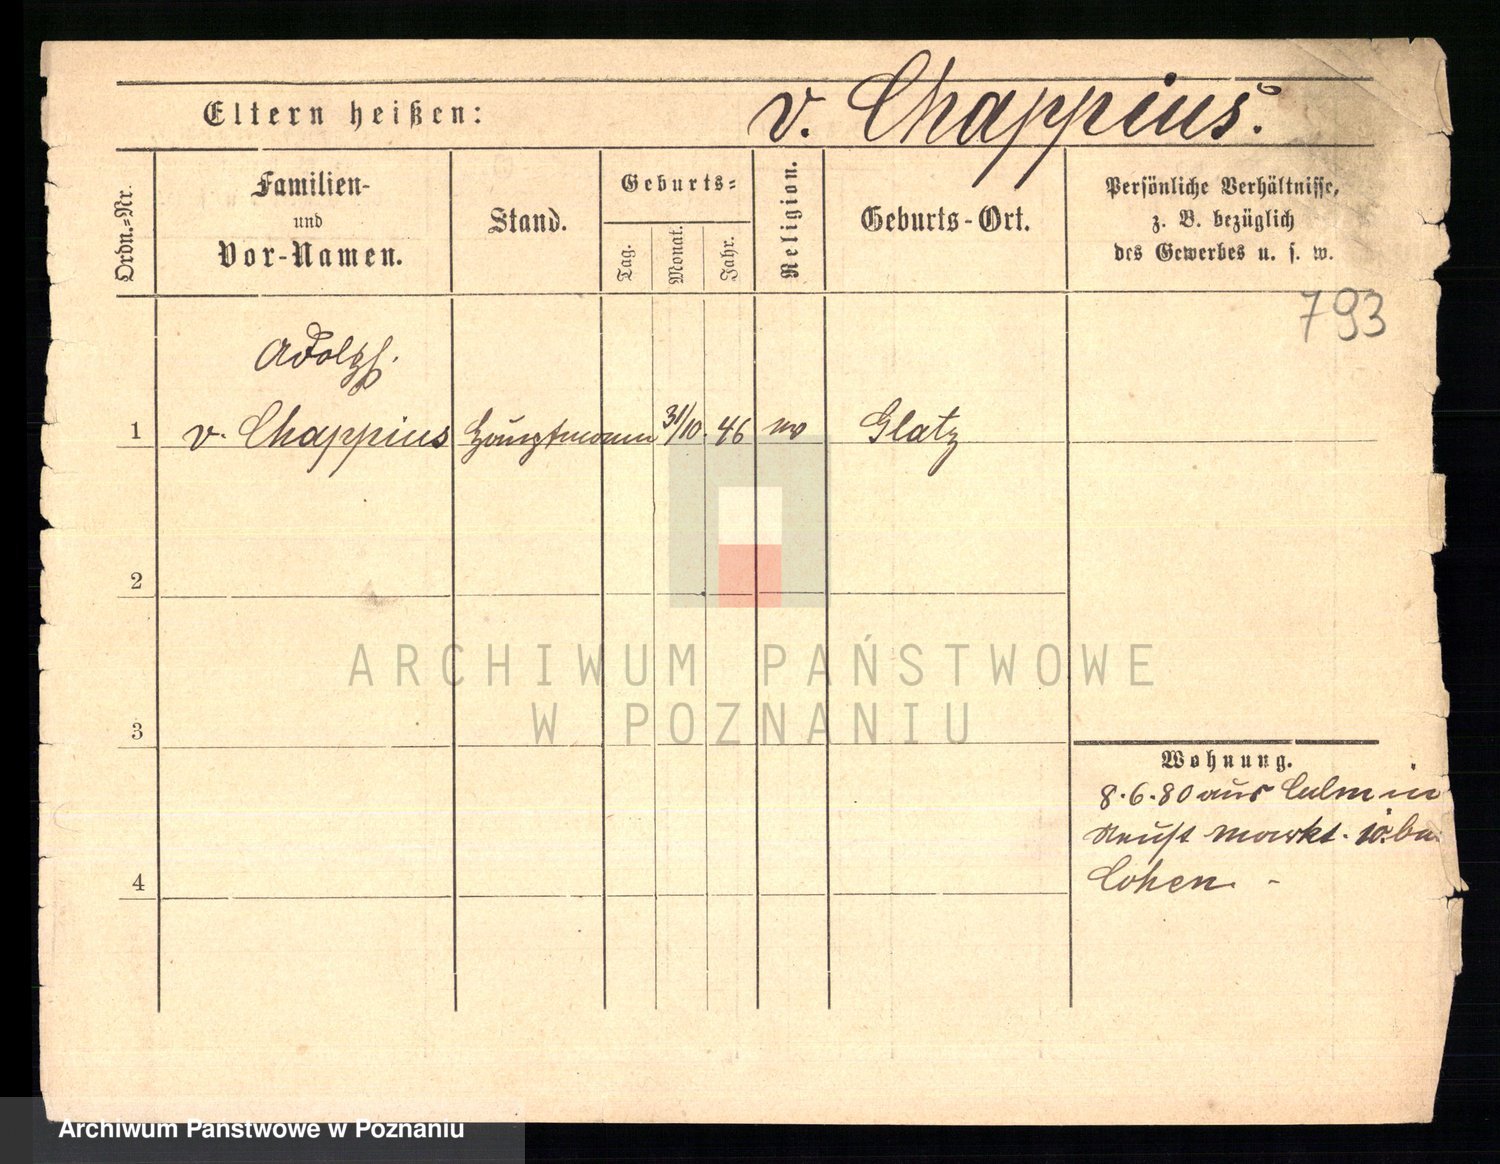 v. Chappius.
Eltern heißen:
Ordn.=Nr.
Familien-
und
Vor-Namen.
Stand.
Geburts=
Tag.
Monat.
Jahr.
Religion.
Geburts-Ort.
Persönliche Verhältnisse,
z. B. bezüglich
des Gewerbes u. s. w.
793
Adolph.
1 v. Chappius Hauptmann 31/10. 46 ev Glatz
2
3
4
Wohnung.
8.6.80 aus Culm in
Neust Markt. 10. bei
Cohen. -
ARCHIWUM PAŃSTWOWE
W POZNANIU
Archiwum Państwowe w Poznaniu